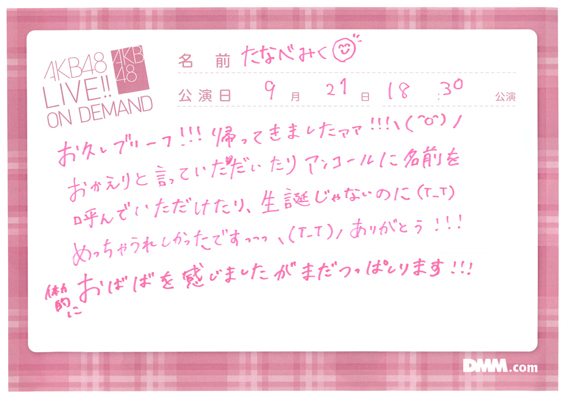 AKB48
LIVE!!
ON DEMAND
AKB
48
名前 たなべみく
公演日 9月21日 18:30 公演
お久しブリーフ!!!帰ってきましたァァ!!!ヽ(^o^)ノ
おかえりと言っていただいたりアンコールに名前を
呼んでいただけたり、生誕じゃないのに(T_T)
めっちゃうれしかったですっっっヽ(T_T)ノありがとう!!!
体力的に
おばばを感じましたがまだつっぱしります!!!
DMM.com